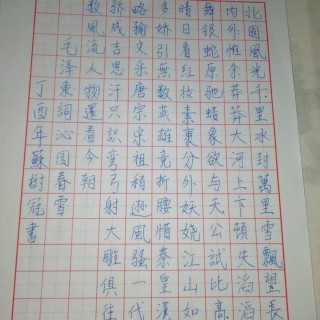 北國風光千里冰封萬里雪飄望長
內外惟余莽莽大河上下頓失滔滔
舞銀蛇原馳蜡象欲與天公試比高
晴日看紅妝素裹分外妖嬈江山如
多嬌引無數英雄竞折腰惜秦皇漢
略輸文采唐宗宋祖稍遜風騷一代
驕成吉思汗只識彎弓射大雕俱往
數風流人物還看今朝
毛泽東詞沁園春雪
丁酉年蘇樹冠書